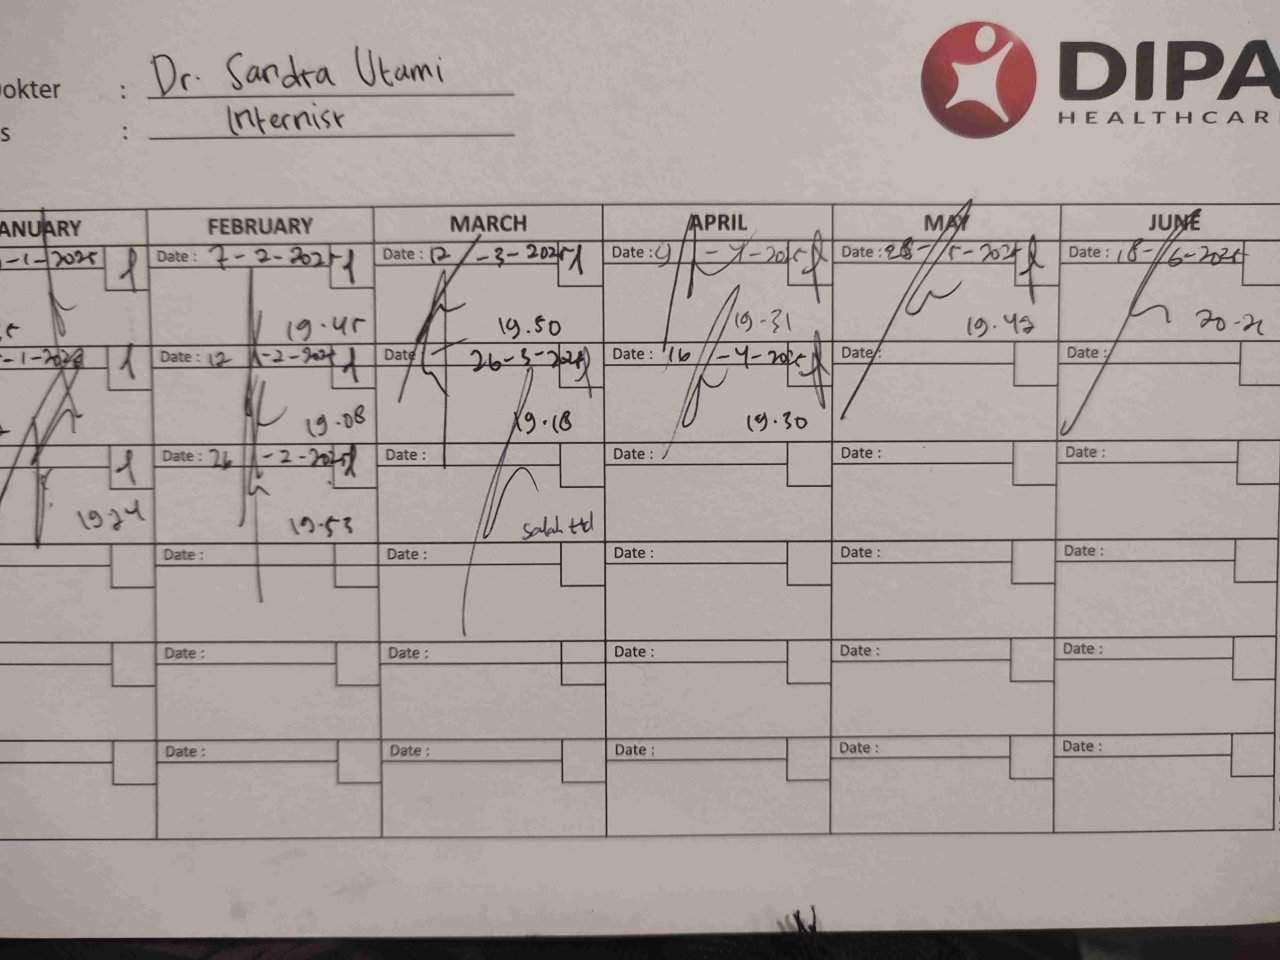 Dokter : Dr. Sandra Utami
s : Internist
DIPA
HEALTHCAR
ANUARY FEBRUARY MARCH APRIL MAY JUNE
-1-2025 Date : 7-2-2025 Date : 12-3-2025 Date : 9-4-2025 Date : 28-5-2025 Date : 18-6-2025
19.45 19.50 19-31 19.42
-1-2025 Date : 12-2-2025 Date 26-3-2025 Date : 16-4-2025 Date : Date :
19.08 19.18 19.30
Date : 26-2-2025 Date : Date : Date : Date :
19.24 19.53 Salah ttd
Date : Date : Date : Date : Date :
Date : Date : Date : Date : Date :
Date : Date : Date : Date : Date :